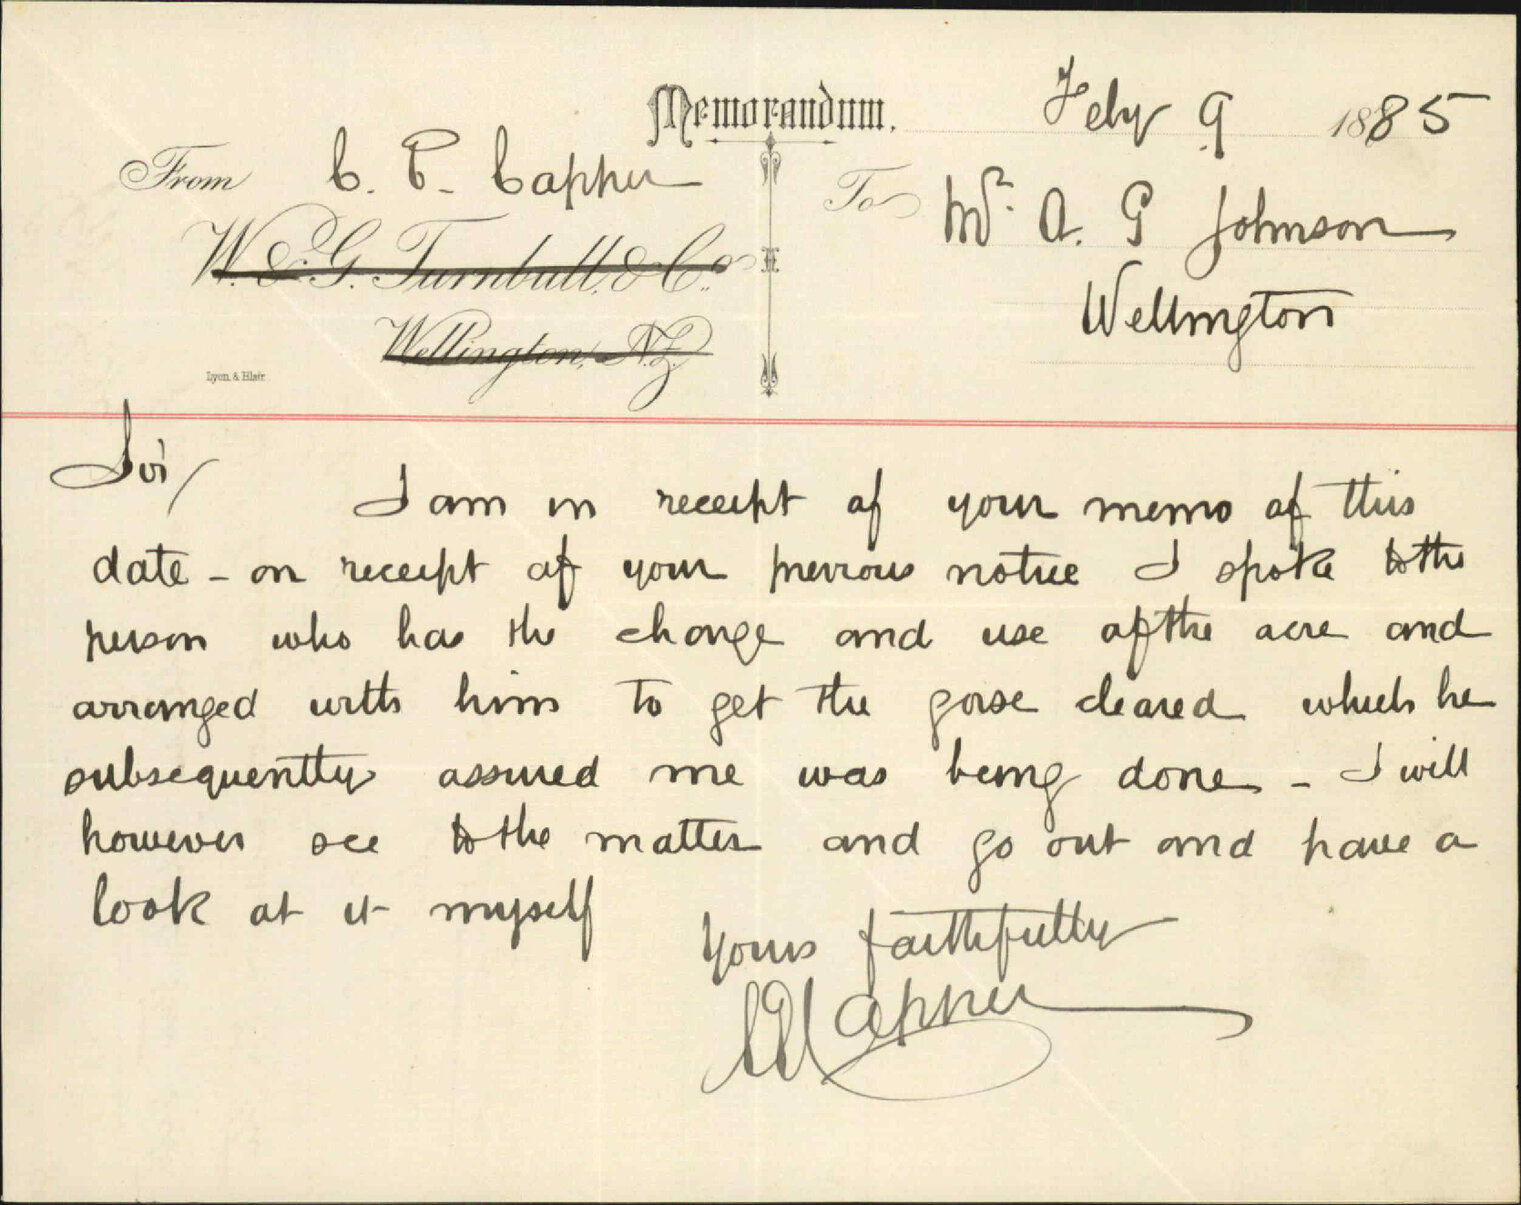 Memorandum.
Feby 9 1885
From C. P. Capper
To Mr. A. G Johnson
W. & G. Turnbull, & Co.
Wellington
Wellington, N.Z.
Lyon & Blair
Sir/
I am in receipt of your memo of this
date - on receipt of your previous notice I spoke to the
person who has the charge and use of the acre and
arranged with him to get the gorse cleared which he
subsequently assured me was being done - I will
however see to the matter and go out and have a
look at it myself
Yours faithfully
CPCapper